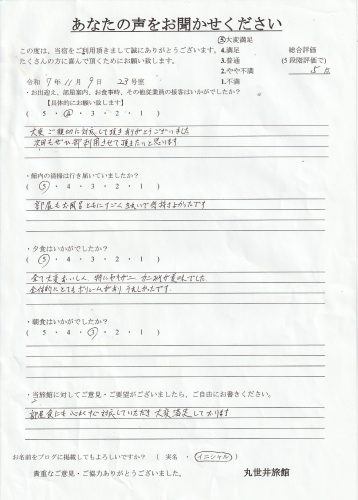 あなたの声をお聞かせください
この度は、当宿をご利用頂きまして誠にありがとうございます。
たくさんの方に喜んで頂くためにお願い致します。
⑤大変満足
4.満足
3.普通
2.やや不満
1.不満
総合評価
(5段階評価で)
5点
令和 7年 11月 9日 23号室
・お出迎え、部屋案内、お食事時、その他従業員の接客はいかがでしたか?
【具体的にお願い致します】
( 5 ・ ④ ・ 3 ・ 2 ・ 1 )
大変ご親切に対応して頂きありがとうございました
次回もぜひ利用させて頂きたいと思います
・館内の清掃は行き届いていましたか?
( ⑤ ・ 4 ・ 3 ・ 2 ・ 1 )
部屋もお風呂もともにすごくきれいで気持よかったです
・夕食はいかがでしたか?
( ⑤ ・ 4 ・ 3 ・ 2 ・ 1 )
全て大変おいしく、特に カニ が美味でした
全体的にとてもボリュームがありうれしかったです。
・朝食はいかがでしたか?
( 5 ・ 4 ・ ③ ・ 2 ・ 1 )
・当旅館に対してご意見・ご要望がございましたら、ご自由にお書きください。
部屋食にも 対応していただき 大変満足しております
お名前をブログに掲載してもよろしいですか? ( 実名 ・ イニシャル )
貴重なご意見・ご協力ありがとうございました。
丸世井旅館